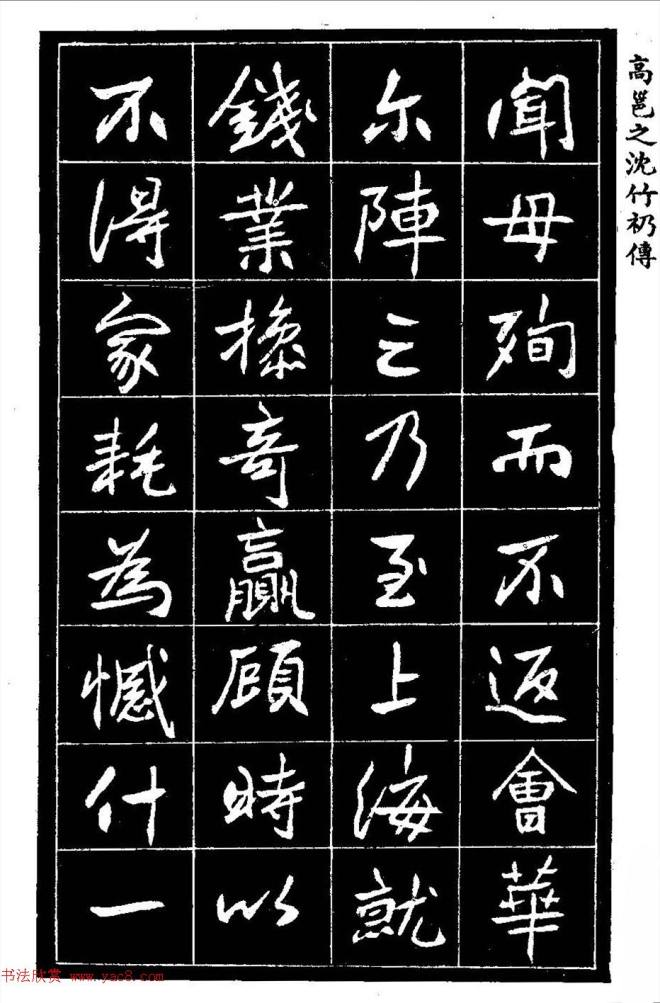 高邕之沈竹礽傳
聞母殉而不返會華
尔陣亡乃至上海就
錢業操奇贏顧時以
不得家耗為憾什一
书法欣赏 www.yac8.com